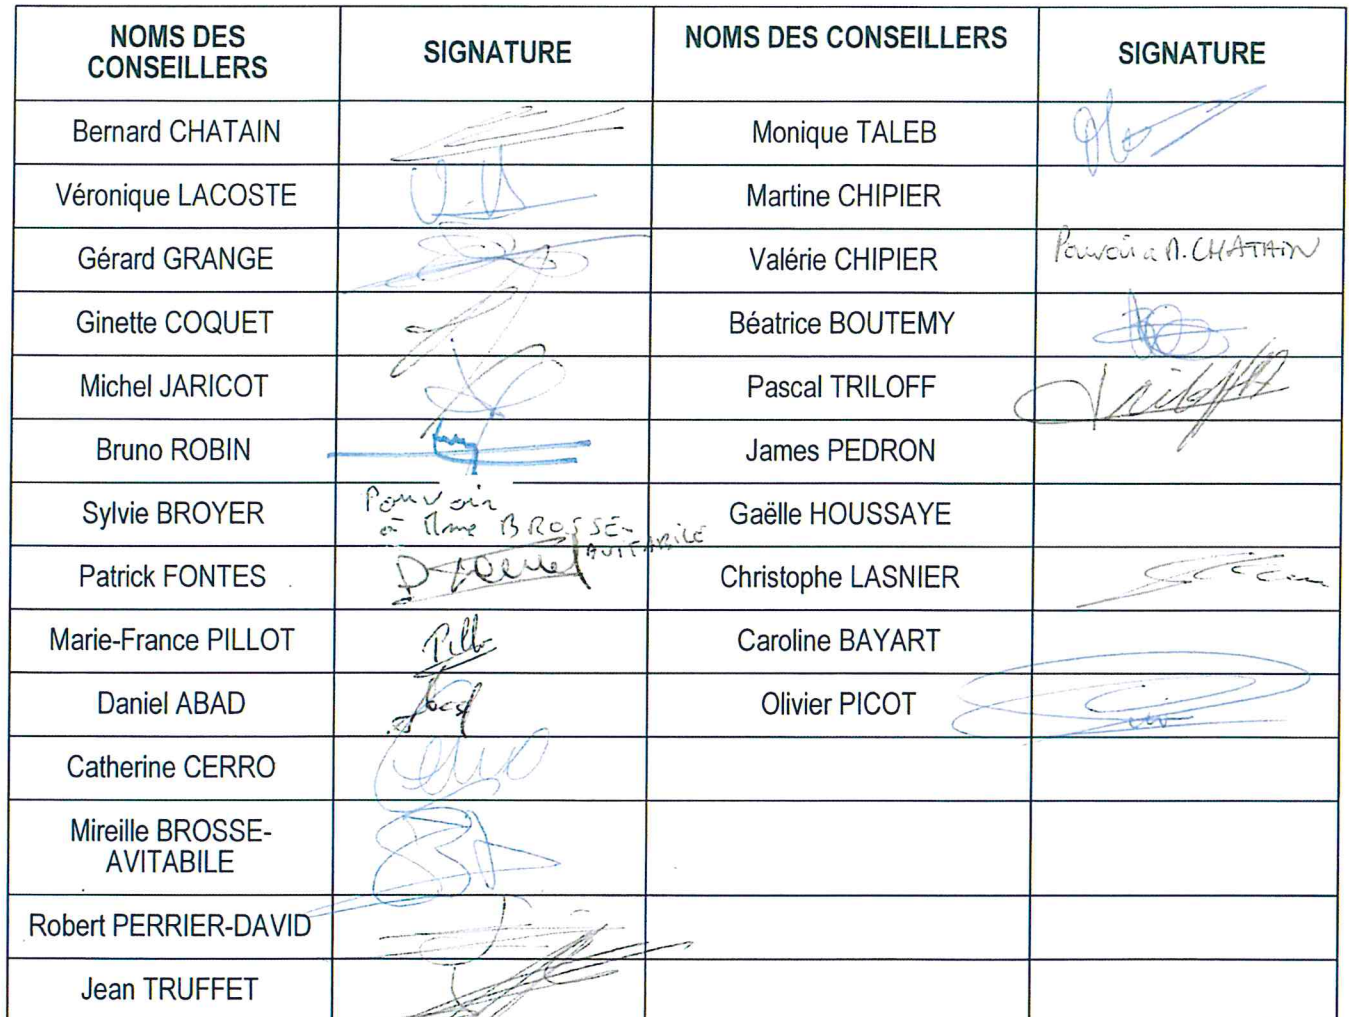 NOMS DES
CONSEILLERS
SIGNATURE
NOMS DES CONSEILLERS
SIGNATURE
Bernard CHATAIN
Monique TALEB
Véronique LACOSTE
Martine CHIPIER
Gérard GRANGE
Valérie CHIPIER
Pouvoir à M. CHATAIN
Ginette COQUET
Béatrice BOUTEMY
Michel JARICOT
Pascal TRILOFF
Triloff
Bruno ROBIN
James PEDRON
Sylvie BROYER
Pouvoir
à Mme BROSSE-
AVITABILE
Gaëlle HOUSSAYE
Patrick FONTES
Christophe LASNIER
Marie-France PILLOT
Caroline BAYART
Daniel ABAD
Olivier PICOT
Catherine CERRO
Mireille BROSSE-
AVITABILE
Robert PERRIER-DAVID
Jean TRUFFET